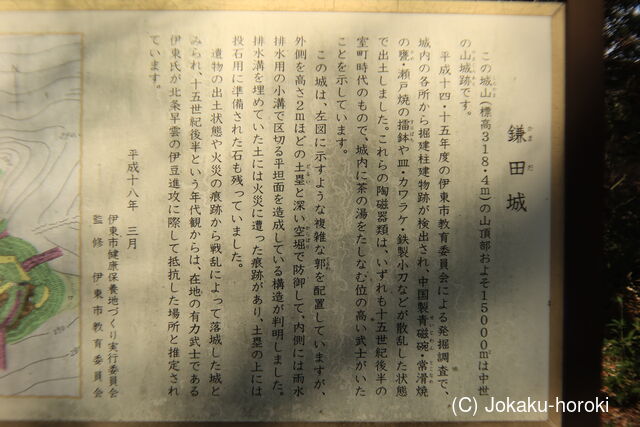 鎌田城
かまだ
この城山(標高318・4m)の山頂部およそ15000㎡は中世
の山城跡です。
平成十四・十五年度の伊東市教育委員会による発掘調査で、
城内の各所から掘建柱建物跡が検出され、中国製青磁碗・常滑焼
の甕・瀬戸焼の擂鉢や皿・カワラケ・鉄製小刀などが散乱した状態
で出土しました。これらの陶磁器類は、いずれも十五世紀後半の
室町時代のもので、城内に茶の湯をたしなむ位の高い武士がいた
ことを示しています。
この城は、左図に示すような複雑な郭を配置していますが、
外側を高さ2mほどの土塁と深い空堀で防御して、内側には雨水
排水用の小溝で区切る平坦面を造成している構造が判明しました。
排水溝を埋めていた土には火災に遭った痕跡があり、土塁の上には
投石用に準備された石も残っていました。
遺物の出土状態や火災の痕跡から戦乱によって落城した城と
みられ、十五世紀後半という年代観からは、在地の有力武士である
伊東氏が北条早雲の伊豆進攻に際して抵抗した場所と推定され
ています。
平成十八年 三月
伊東市健康保養地づくり実行委員会
監修 伊東市教育委員会
(C) Jokaku-horoki